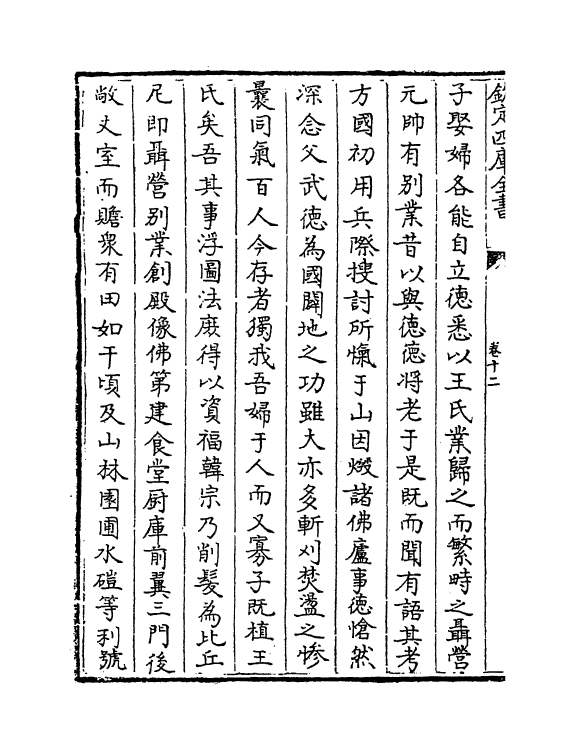 欽定四庫全書
卷十二
子娶婦各能自立德悉以王氏業歸之而繁時之聶營
元帥有别業昔以與德德将老于是既而聞有語其考
方國初用兵際搜討所愾于山因燬諸佛廬事德愴然
深念父武德為國闢地之功雖大亦多斬刈焚盪之惨
曩同氣百人今存者獨我吾婦于人而又寡子既植王
氏矣吾其事浮圖法庶得以資福韓宗乃削髮為比丘
尼即聶營别業創殿像佛第建食堂厨庫前翼三門後
敞丈室而贍衆有田如干頃及山林園圃水磑等利號